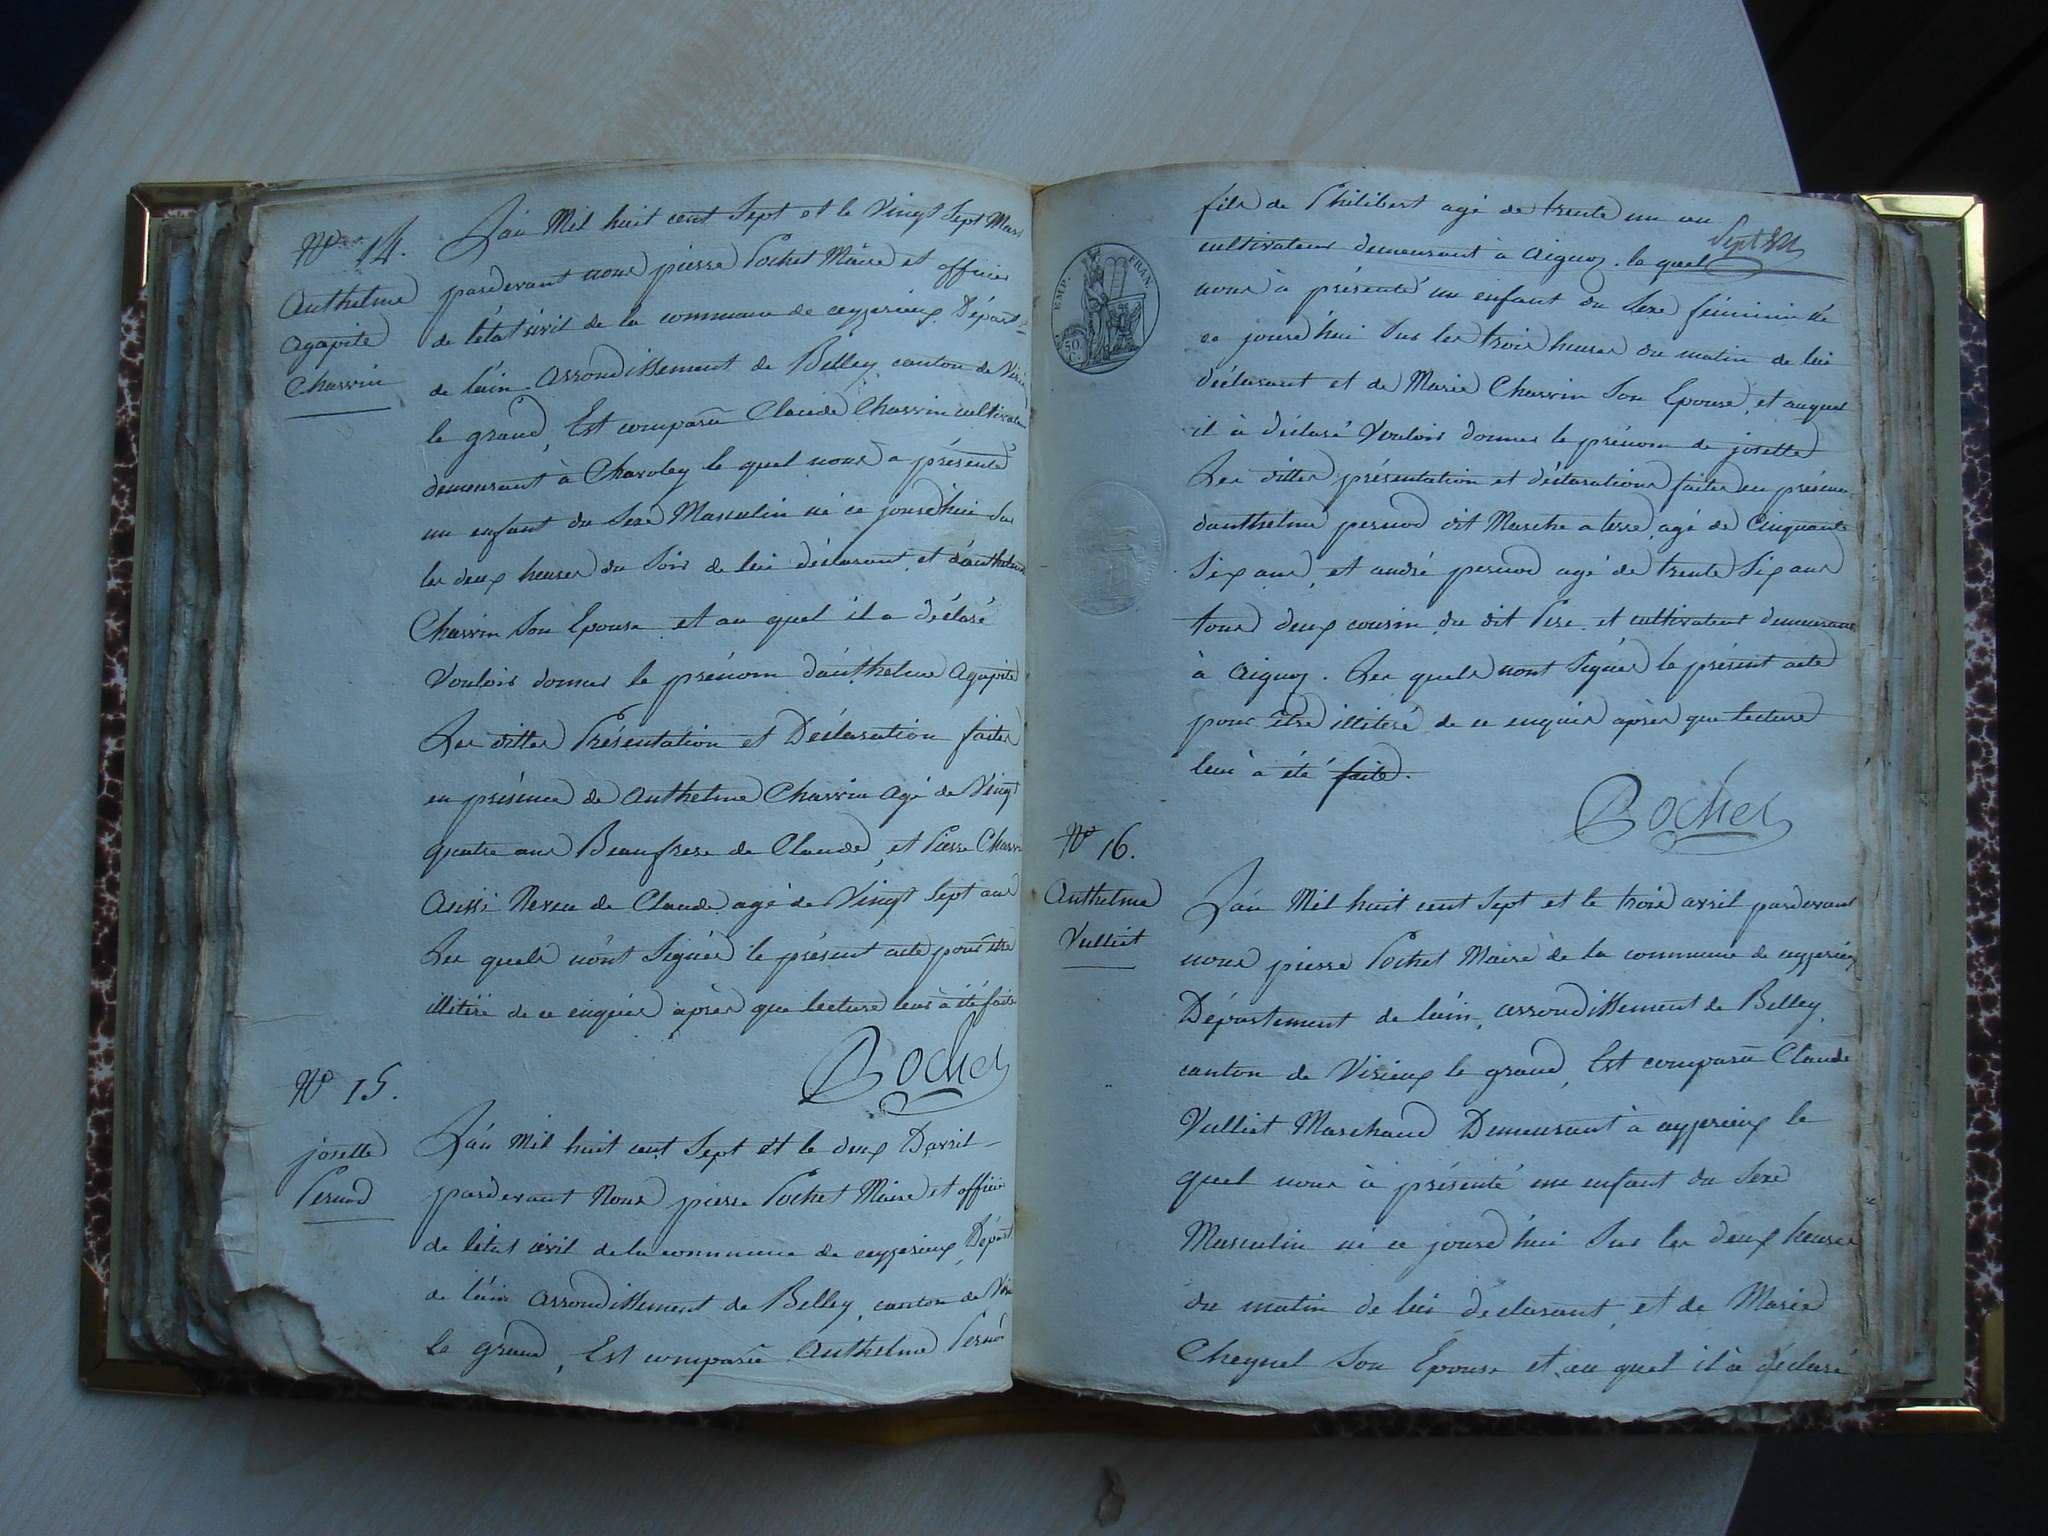 N° 14.
Anthelme
agapite
Charvin
L'an Mil huit cent Sept et le Vingt Sept Mars
pardevant nous pierre Pochet Maire et officier
de l'état civil de la commune de ceyzerieux Départ.t
de l'ain arrondissement de Belley canton de Viri
le grand, Est comparû Claude Charvin cultivateur
demeurant à Chavoley le quel nous a présenté
un enfant du Sexe Masculin né ce jourd'hui Sur
les deux heures du Soir de lui déclarant et d'anthelme
Charvin Son Epouse et au quel il a déclaré
Vouloir donner le prénom d'anthelme agapite
Les dittes Présentation et Déclaration faites
en présence de anthelme Charvin agé de Vingt
quatre ans Beaufrere de Claude, et Pierre Charvin
aussi Neveu de Claude agé de Vingt Sept ans
Les quels n'ont Signés le présent acte pour être
illitéré de ce enquis après que lecture leur à été faite
Pochet
N° 15.
josette
Pernod
L'an Mil huit cent Sept et le deux D'avril
pardevant Nous pierre Pochet Maire et officier
de l'état civil de la commune de ceyzerieux Départ
de l'ain arrondissement de Belley, canton de Viri
le grand, Est comparû anthelme Pernod
fils de Philibert agé de trente un an
cultivateur demeurant à aignoz. le quel
nous à présenté un enfant du Sexe féminin né
ce jourd'hui Sur les trois heures du matin de lui
déclarant et de Marie Charvin Son Epouse, et auquel
il à déclaré Vouloir donner le prénom de josette
Les dittes présentation et déclarations faites en présence
d'anthelme pernod dit Marche a terre agé de Cinquante
Six ans, et andré pernod agé de trente Six ans
tous deux cousin du dit Pere et cultivateur demeurant
à aignoz. Les quels n'ont Signés le présent acte
pour être illiteré de ce enquis après que lecture
leur à été faite.
Pochet
EMP. FRAN.
50
N° 16.
Anthelme
Vulliet
L'an Mil huit cent Sept et le trois avril pardevant
nous pierre Pochet Maire de la commune de ceyzerieux
Département de l'ain, arrondissement de Belley,
canton de Virieux le grand, Est comparû Claude
Vulliet Marchand Demeurant à ceyzerieux le
quel nous à présenté un enfant du Sexe
Masculin né ce jourd'hui Sur les deux heures
du matin de lui declarant, et de Marie
Cheynel Son Epouse et au quel il à déclaré